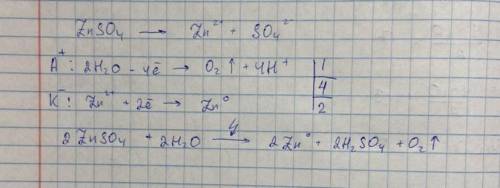 ZnSO₄ ⟶ Zn²⁺ + SO₄²⁻
A⁺: 2H₂O - 4ē → O₂↑ + 4H⁺ | 1
4
K⁻: Zn²⁺ + 2ē → Zn⁰ | 2
2ZnSO₄ + 2H₂O ⟶ 2Zn⁰ + 2H₂SO₄ + O₂↑